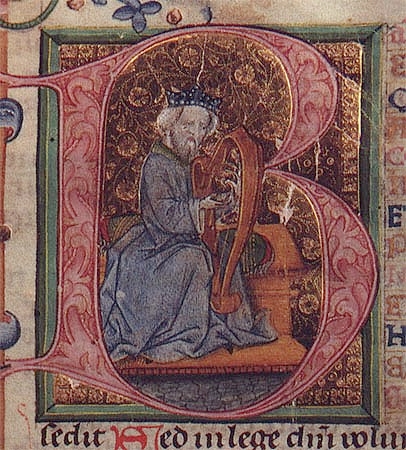 B
E
H
sedit Sed in lege dn̄i volun